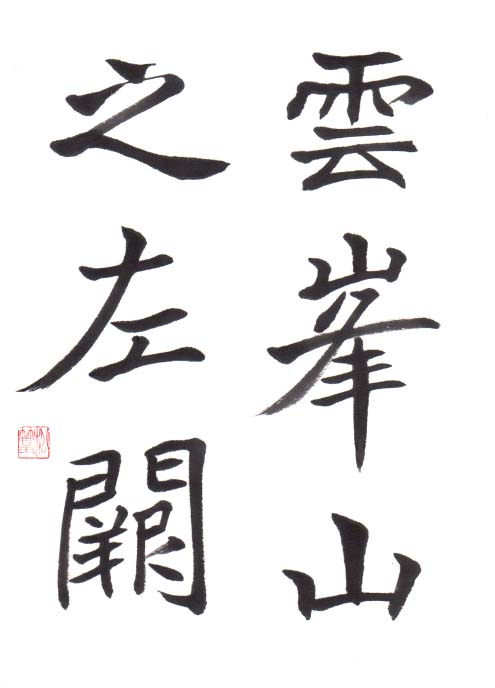 雲峯山
之左闕